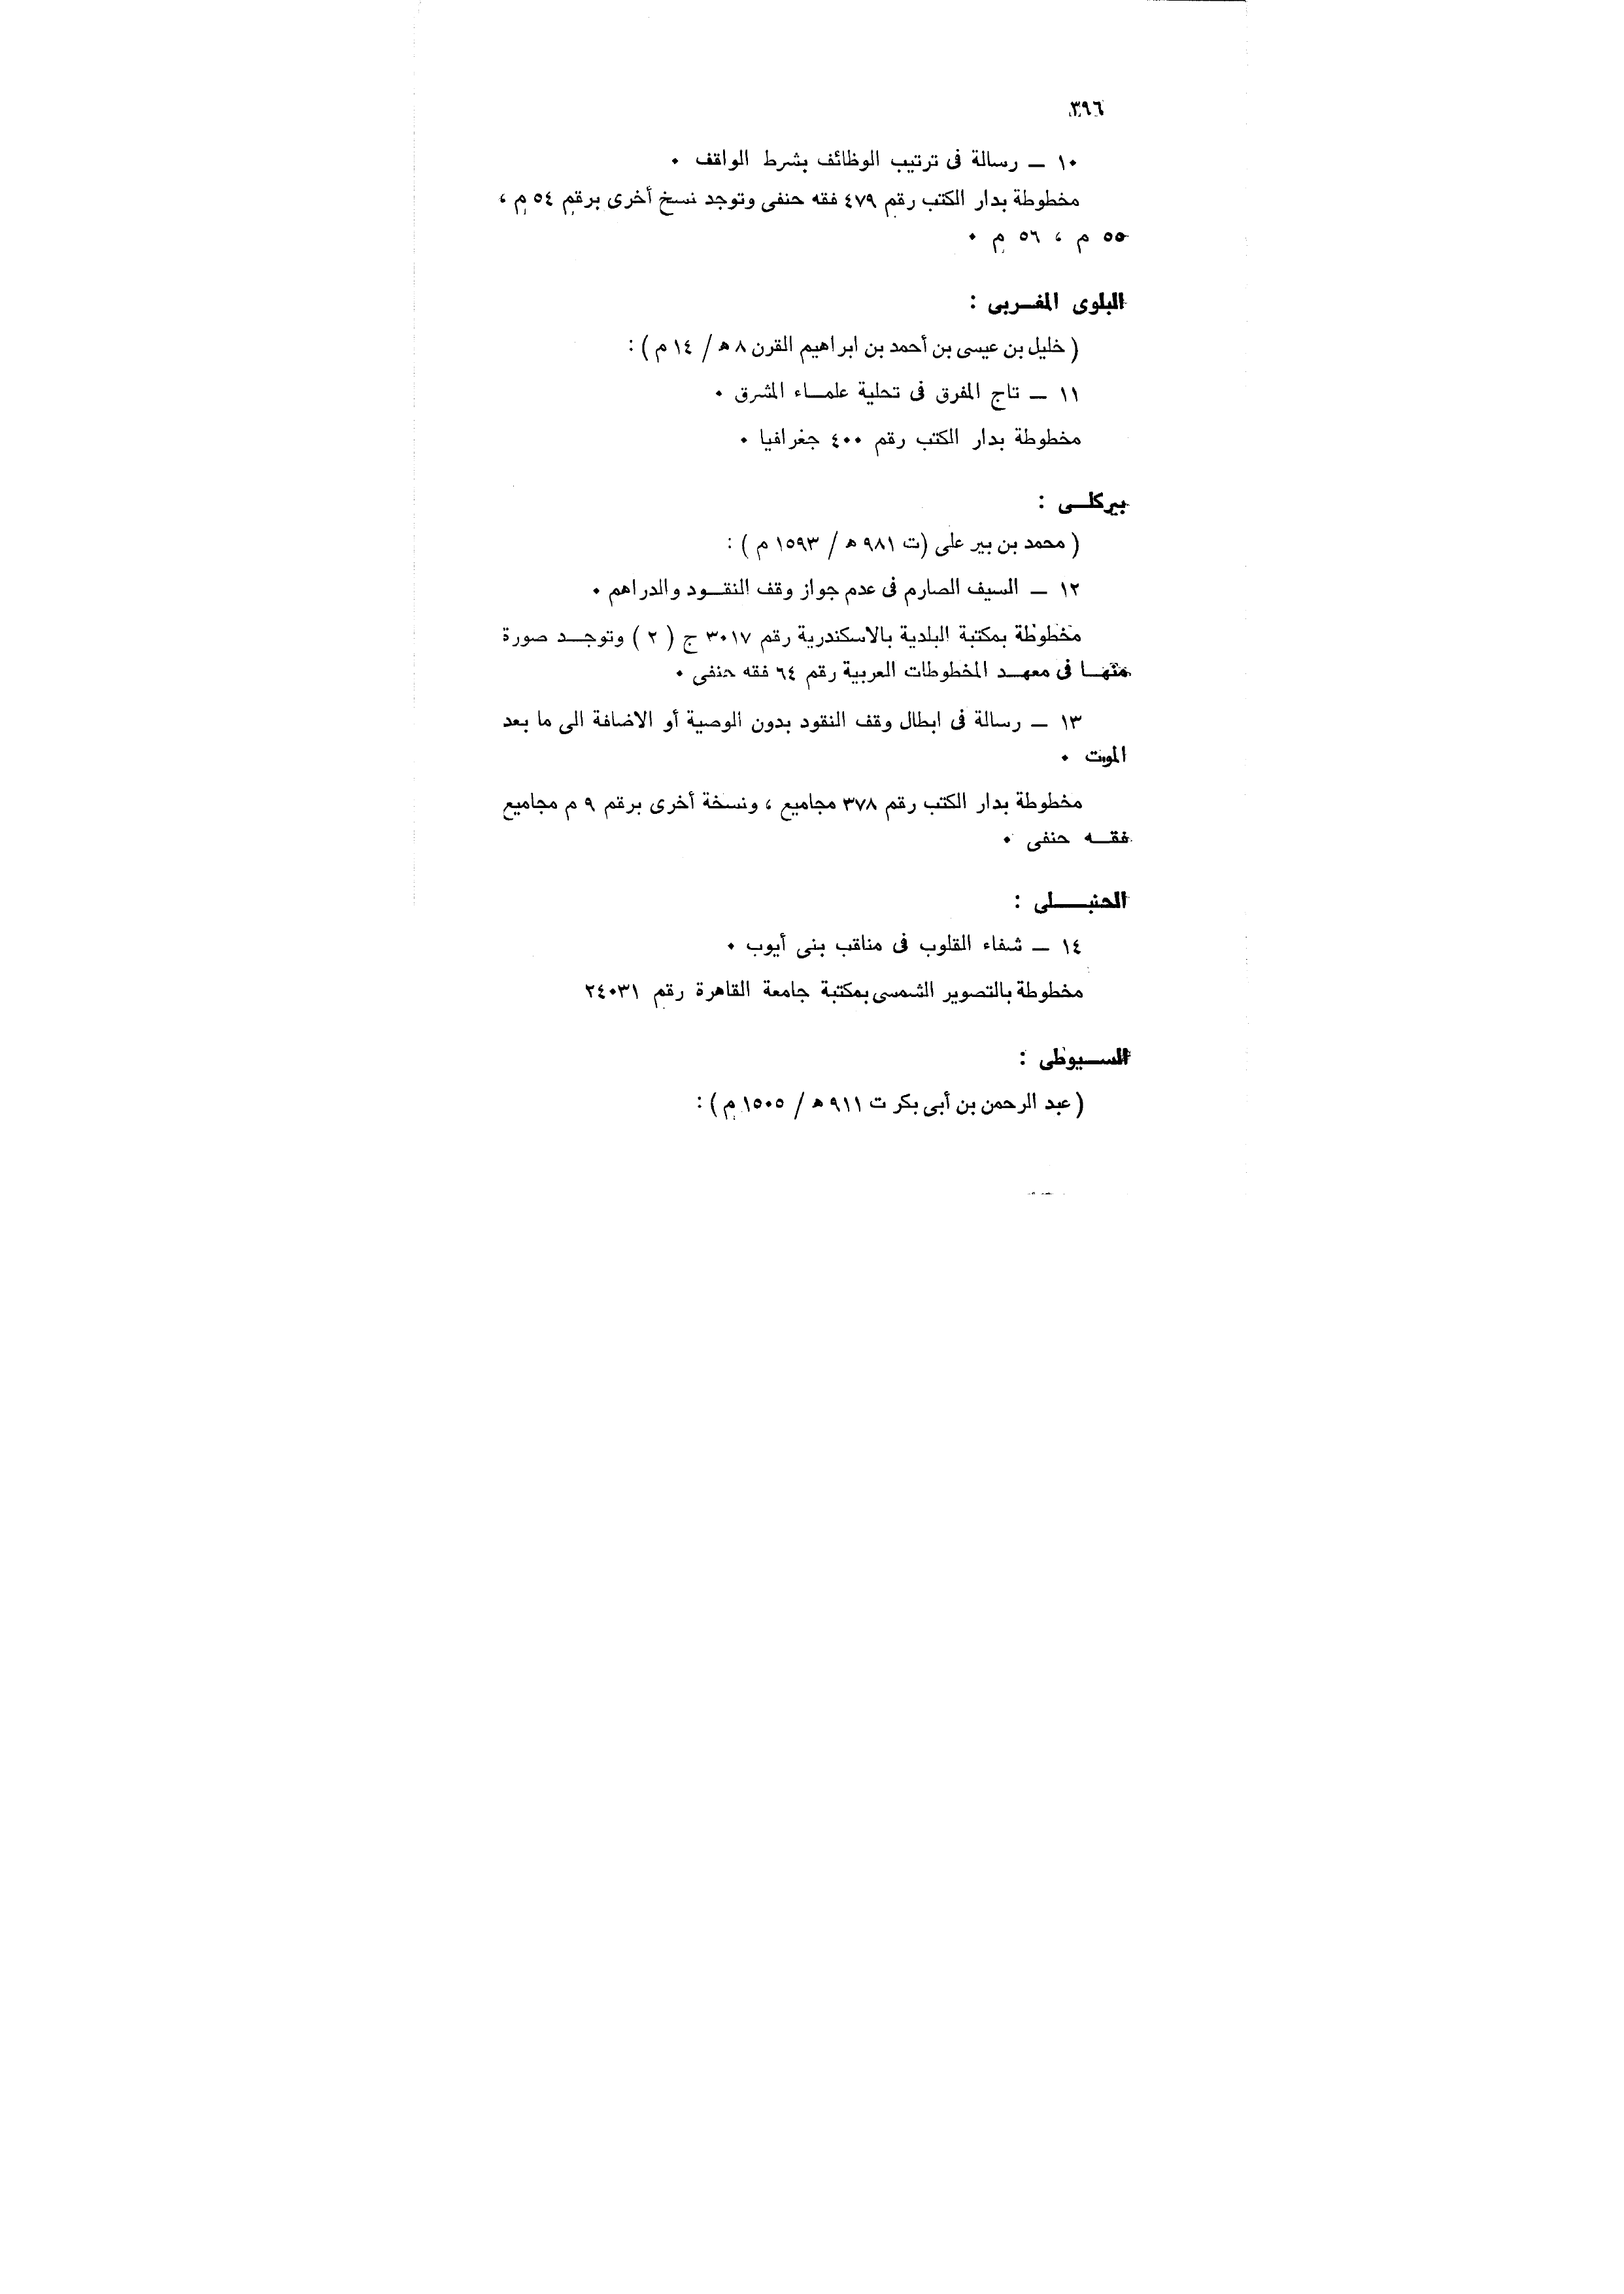 ٣٩٦
١٠ ــ رسالة فى ترتيب الوظائف بشرط الواقف ٠
مخطوطة بدار الكتب رقم ٤٧٩ فقه حنفى وتوجد نسخ أخرى برقم ٥٤ م ،
٥٥ م ، ٥٦ م ٠
البلوى المغـربى :
( خليل بن عيسى بن أحمد بن ابراهيم القرن ٨ هـ / ١٤ م ) :
١١ ــ تاج المفرق فى تحلية علمـاء المشرق ٠
مخطوطة بدار الكتب رقم ٤٠٠ جغرافيا ٠
بيركلـى :
( محمد بن بير على (ت ٩٨١ هـ / ١٥٩٣ م ) :
١٢ ــ السيف الصارم فى عدم جواز وقف النقـود والدراهم ٠
مخطوطة بمكتبة البلدية بالاسكندرية رقم ٣٠١٧ ج ( ٢ ) وتوجـد صورة
منهـا فى معهـد المخطوطات العربية رقم ٦٤ فقه حنفى ٠
١٣ ــ رسالة فى ابطال وقف النقود بدون الوصية أو الاضافة الى ما بعد
الموت ٠
مخطوطة بدار الكتب رقم ٣٧٨ مجاميع ، ونسخة أخرى برقم ٩ م مجاميع
فقـه حنفى ٠
الحنبـلى :
١٤ ــ شفاء القلوب فى مناقب بنى أيوب ٠
مخطوطة بالتصوير الشمسى بمكتبة جامعة القاهرة رقم ٢٤٠٣١
السـيوطى :
( عبد الرحمن بن أبى بكر ت ٩١١ هـ / ١٥٠٥ م ) :